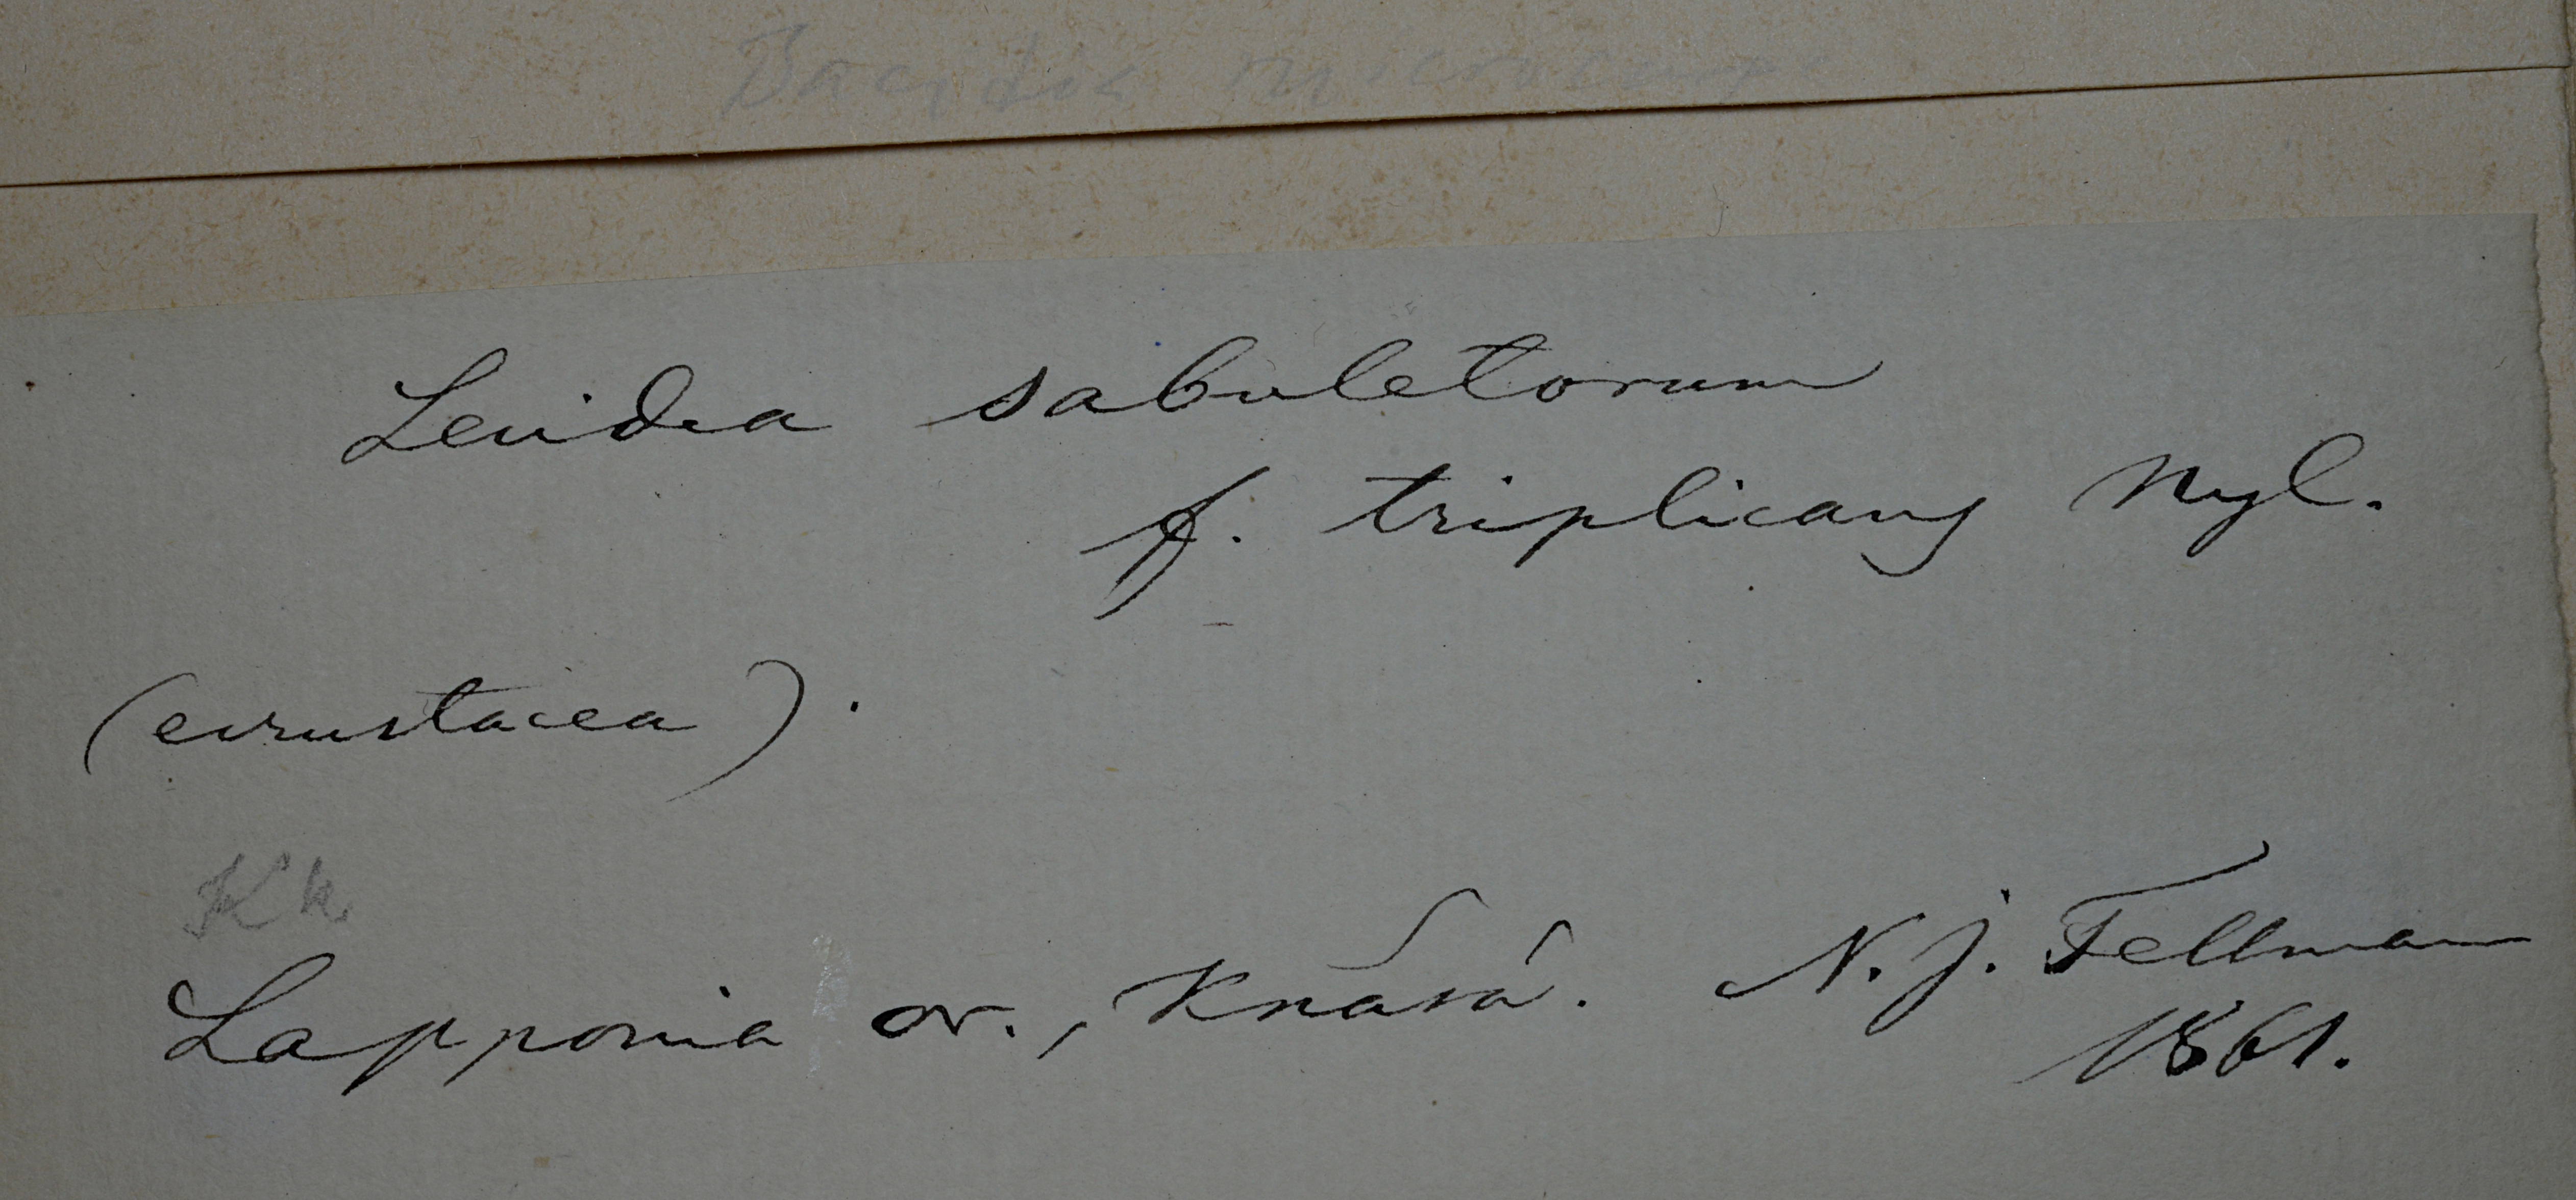 Bacidia microcarpa
Lecidea sabuletorum
f. triplicans Nyl.
(ecrustacea).
Kk.
Lapponia or., Knäsä. N. J. Fellman
1861.